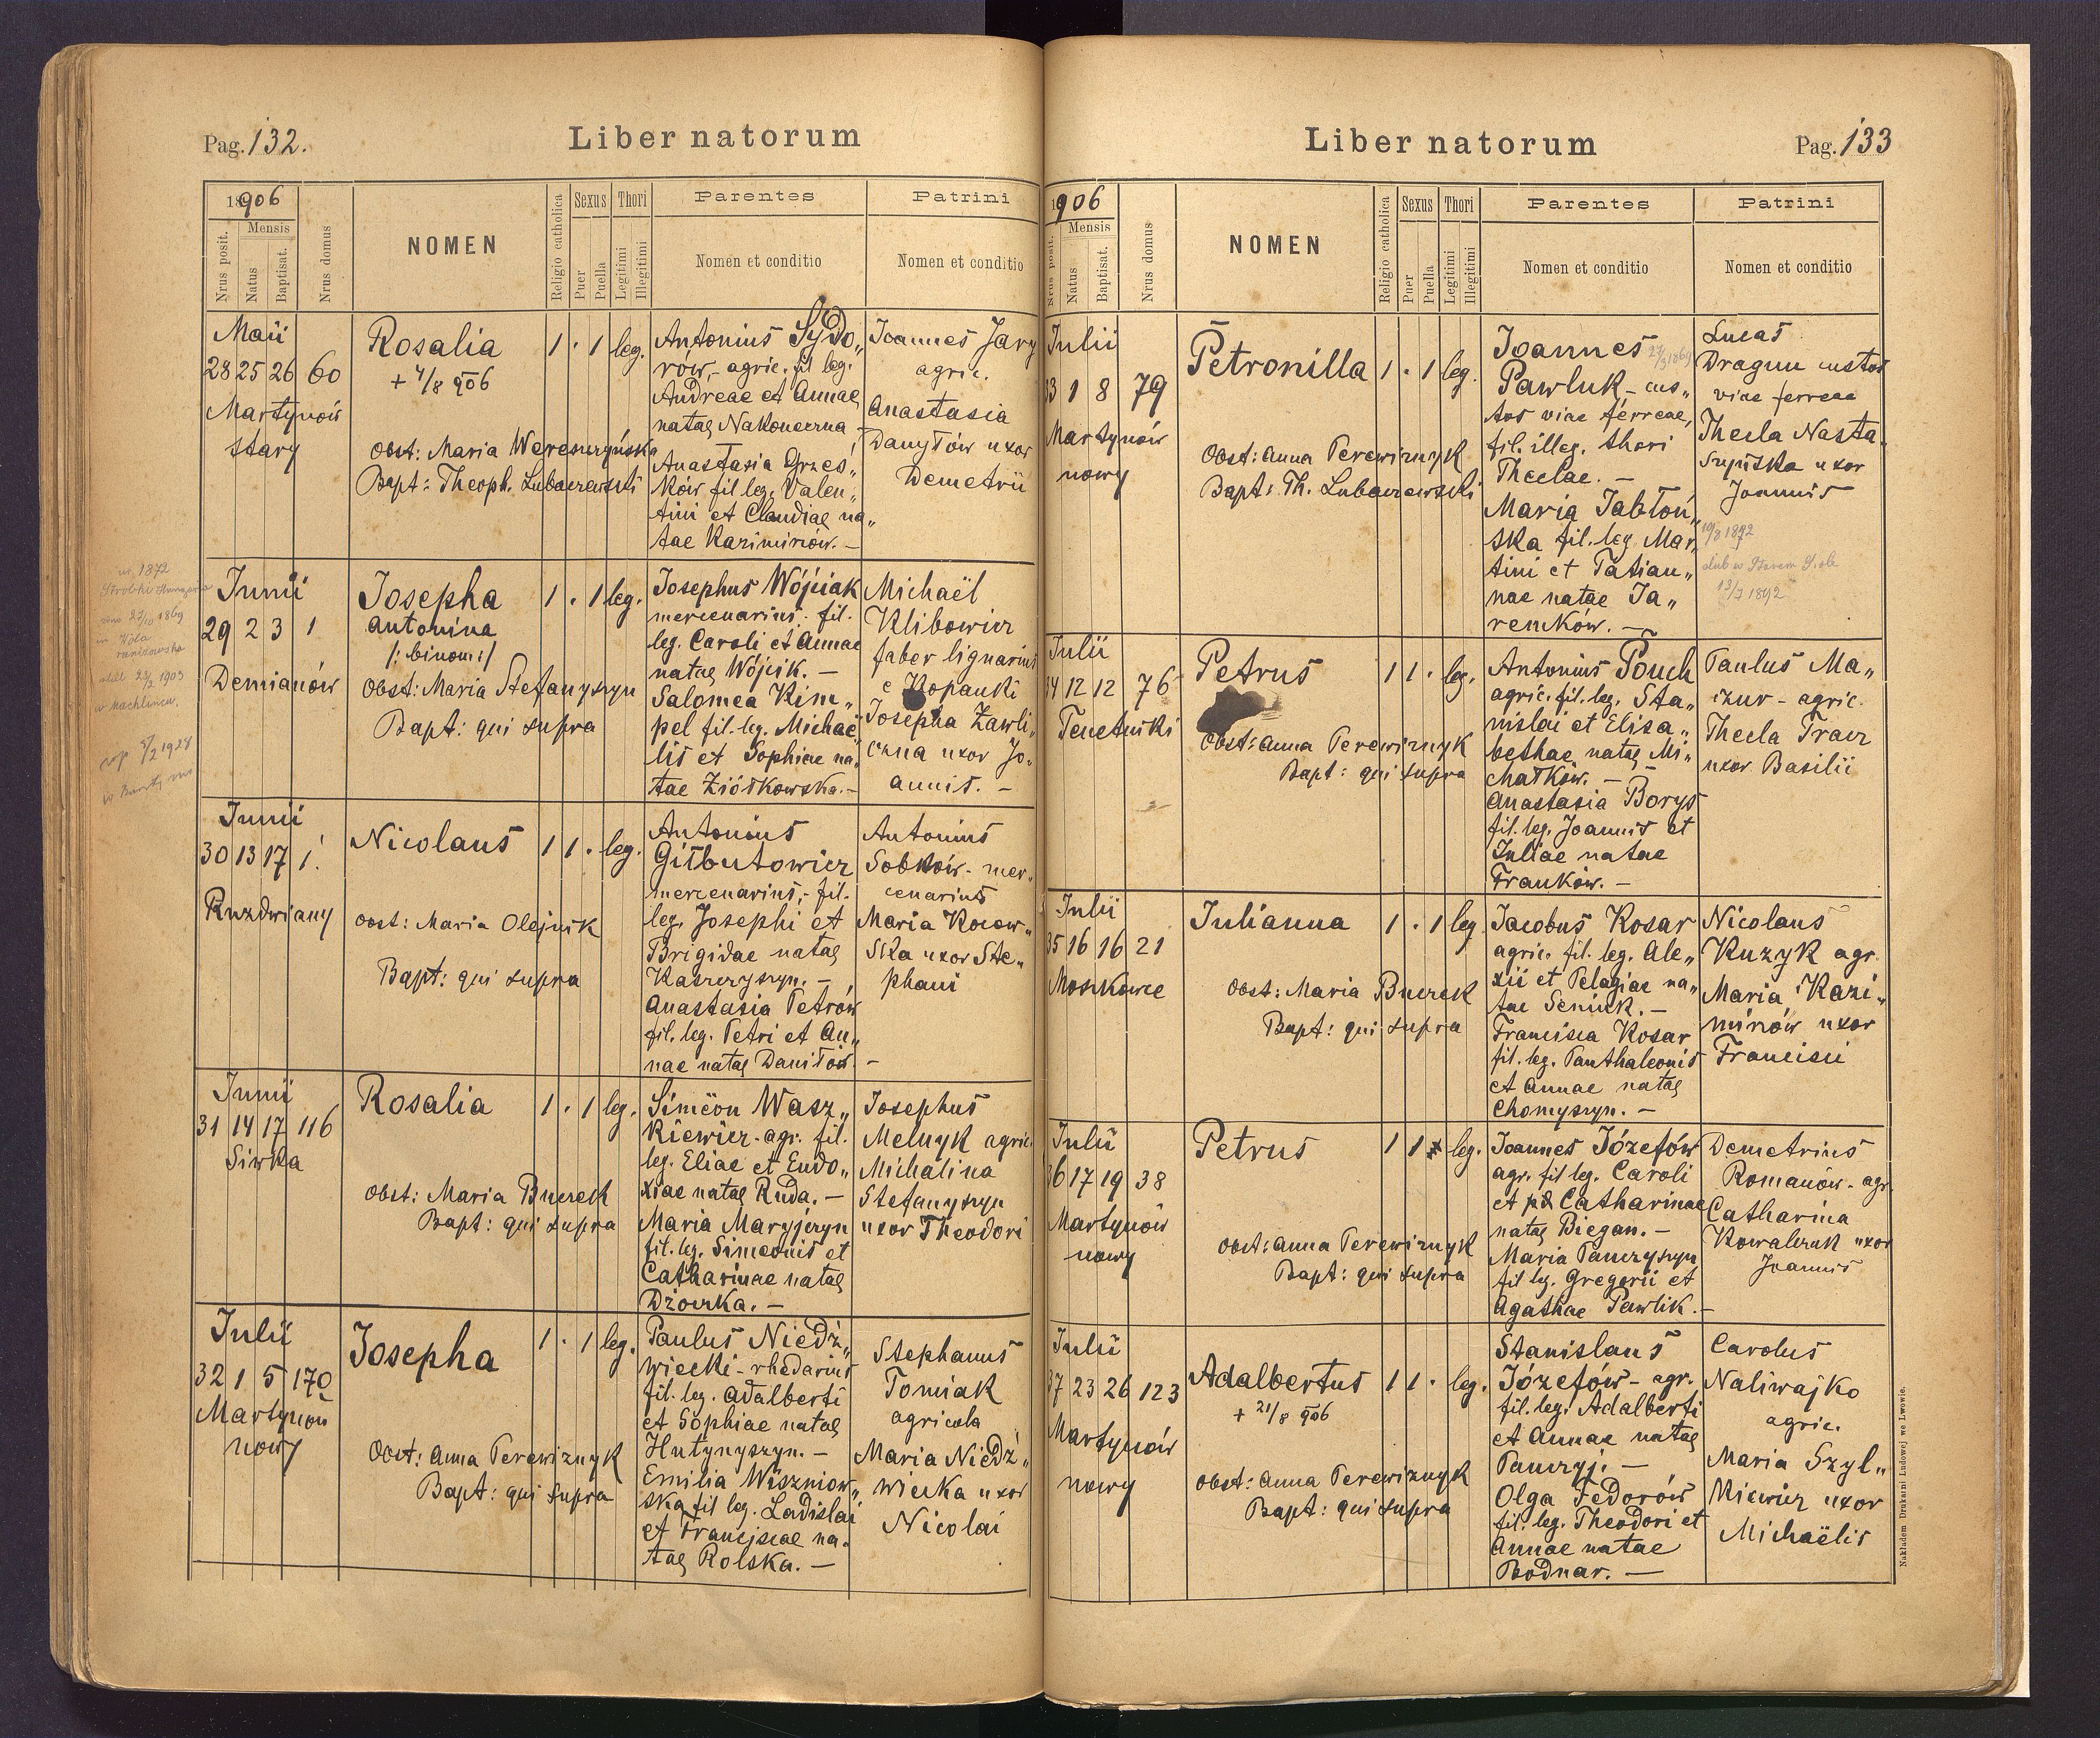 Pag. 132.
Liber natorum
1906
Mensis
Nrus posit.
Natus
Baptisat.
Nrus domus
NOMEN
Religio catholica
Sexus
Puer
Puella
Thori
Legitimi
Illegitimi
Parentes
Nomen et conditio
Patrini
Nomen et conditio
Maii
28 25 26 60
Martynów
stary
Rosalia
+ 4/8 906
Obst: Maria Wereszczyńska
Bapt: Theoph. Lubaczewski
1 · 1 leg.
Antonius Sydo„
rów, agric. fil leg.
Andreae et Annae
natae Nakoneczna
Anastasia Grześ„
ków fil leg. Valen„
tini et Claudiae na„
tae Kazimirów. —
Joannes Jary
agric.
Anastasia
Danyłów uxor
Demetrii
Junii
29 2 3 1
Demianów
Josepha
Antonina
/: binom :/
Obst: Maria Stefanyszyn
Bapt: qui supra
1 · 1 leg.
Josephus Wójciak
mercenarius, fil.
leg. Caroli et Annae
natae Wójcik. —
Salomea Kim„
pel fil. leg. Michaë„
lis et Sophiae na„
tae Ziółkowska. —
Michaël
Klibowicz
faber lignarius
e Kopanki
Josepha Zawli„
czna uxor Jo„
annis. —
Junii
30 13 17 1.
Ruzdwiany
Nicolaus
Obst: Maria Olejnik
Bapt: qui supra
1 1 · leg.
Antonius
Giłbutowicz
mercenarius, fil.
leg. Josephi et
Brigidae natae
Kaszczyszyn. —
Anastasia Petrów
fil. leg. Petri et An„
nae natae Daniłów. —
Antonius
Sobków - mer„
cenarius
Maria Kocow„
ska uxor Ste„
phani
Junii
31 14 17 116
Siwka
Rosalia
Obst: Maria Buczek
Bapt: qui supra
1 · 1 leg.
Simeon Wasz„
kiewicz - agr. fil.
leg. Eliae et Eudo„
xiae natae Ruda. —
Maria Maryjczyn
fil. leg. Simeonis et
Catharinae natae
Dżoczka. —
Josephus
Melnyk agric.
Michalina
Stefanyszyn
uxor Theodori
Julii
32 1 5 170
Martynów
nowy
Josepha
Obst: Anna Perewiznyk
Bapt: qui supra
1 · 1 leg.
Paulus Niedź„
wiecki - rhedarius
fil. leg. Adalberti
et Sophiae natae
Hutynyszyn. —
Emilia Wiszniow„
ska fil leg. Ladislai
et Franciscae na„
tae Rolska. —
Stephanus
Tomiak
agricola
Maria Niedź„
wiecka uxor
Nicolai
Liber natorum
Pag. 133
1906
Mensis
Nrus posit.
Natus
Baptisat.
Nrus domus
NOMEN
Religio catholica
Sexus
Puer
Puella
Thori
Legitimi
Illegitimi
Parentes
Nomen et conditio
Patrini
Nomen et conditio
Julii
33 1 8 79
Martynów
nowy
Petronilla
Obst: Anna Perewiznyk
Bapt: Th. Lubaczewski
1 · 1 leg.
Joannes
Pawluk - cus„
tos viae ferreae,
fil. illeg. thori
Theclae. —
Maria Jabłoń„
ska fil. leg. Mar„
tini et Tatian„
nae natae Ja„
remków. —
Lucas
Dragun custos
viae ferreae
Thecla Nasta„
supska uxor
Joannis
19/8 1892
12/7 1892
Julii
34 12 12 76
Tenetniki
Petrus
Obst: Anna Perewiznyk
Bapt: qui supra
1 1 · leg.
Antonius Pouch
agric. fil. leg. Sta„
nislai et Elisa„
bethae natae Mi„
chałków. —
Anastasia Borys
fil. leg. Joannis et
Juliae natae
Franków. —
Paulus Ma„
zur - agric.
Thecla Tracz
uxor Basilii
Julii
35 16 16 21
Moszkowce
Julianna
Obst: Maria Buczek
Bapt: qui supra
1 · 1 leg
Jacobus Kosar
agric. fil. leg. Ale„
xii et Pelagiae na„
tae Seniuk. —
Francisca Kosar
fil. leg. Panthaleonis
et Annae natae
Chomyszyn. —
Nicolaus
Kuzyk agr.
Maria Kazi„
mirów uxor
Francisci
Julii
36 17 19 38
Martynów
nowy
Petrus
Obst: Anna Perewiznyk
Bapt: qui supra
1 1 leg.
Joannes Józefów
agr. fil leg. Caroli
et Catharinae
natae Biegan. —
Maria Panczyszyn
fil leg. Gregorii et
Agathae Pawlik. —
Demetrius
Romanów - agr.
Catharina
Kowalczuk uxor
Joannis
Julii
37 23 26 123
Martynów
nowy
Adalbertus
+ 21/8 906
Obst: Anna Perewiznyk
Bapt: qui supra
1 1 · leg.
Stanislaus
Józefów - agr.
fil. leg. Adalberti
et Annae natae
Panczyj. —
Olga Fedorów
fil. leg. Theodori et
Annae natae
Bodnar. —
Carolus
Naliwajko
agric.
Maria Szyl„
kiewicz uxor
Michaëlis
Nakładem Drukarni Ludowej we Lwowie.